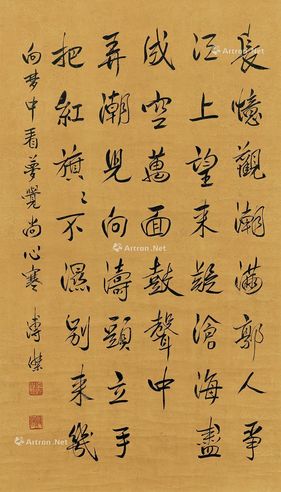 長憶觀潮滿郭人爭
江上望来疑滄海盡
成空萬面鼓聲中
弄潮児向濤頭立手
把紅旗〻不濕别来幾
向夢中看夢覺尚心寒 溥傑
Artron.Net
Artron.Net
Artron.Net
Artron.Net